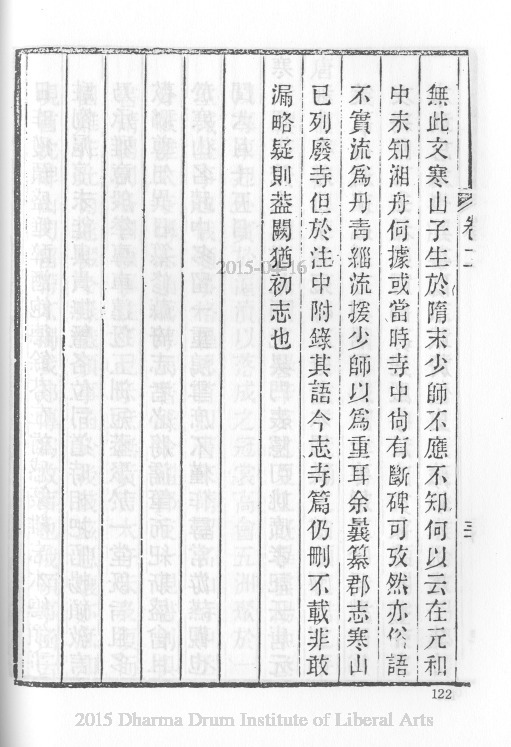 無此文寒山子生於隋末少師不應不知何以云在元和
中未知湘舟何據或當時寺中尙有斷碑可攷然亦俗語
不實流爲丹靑緇流援少師以爲重耳余曩纂郡志寒山
已列廢寺但於注中附錄其語今志寺篇仍刪不載非敢
漏略疑則葢闕猶初志也
122
2015-04-16
2015 Dharma Drum Institute of Liberal Arts